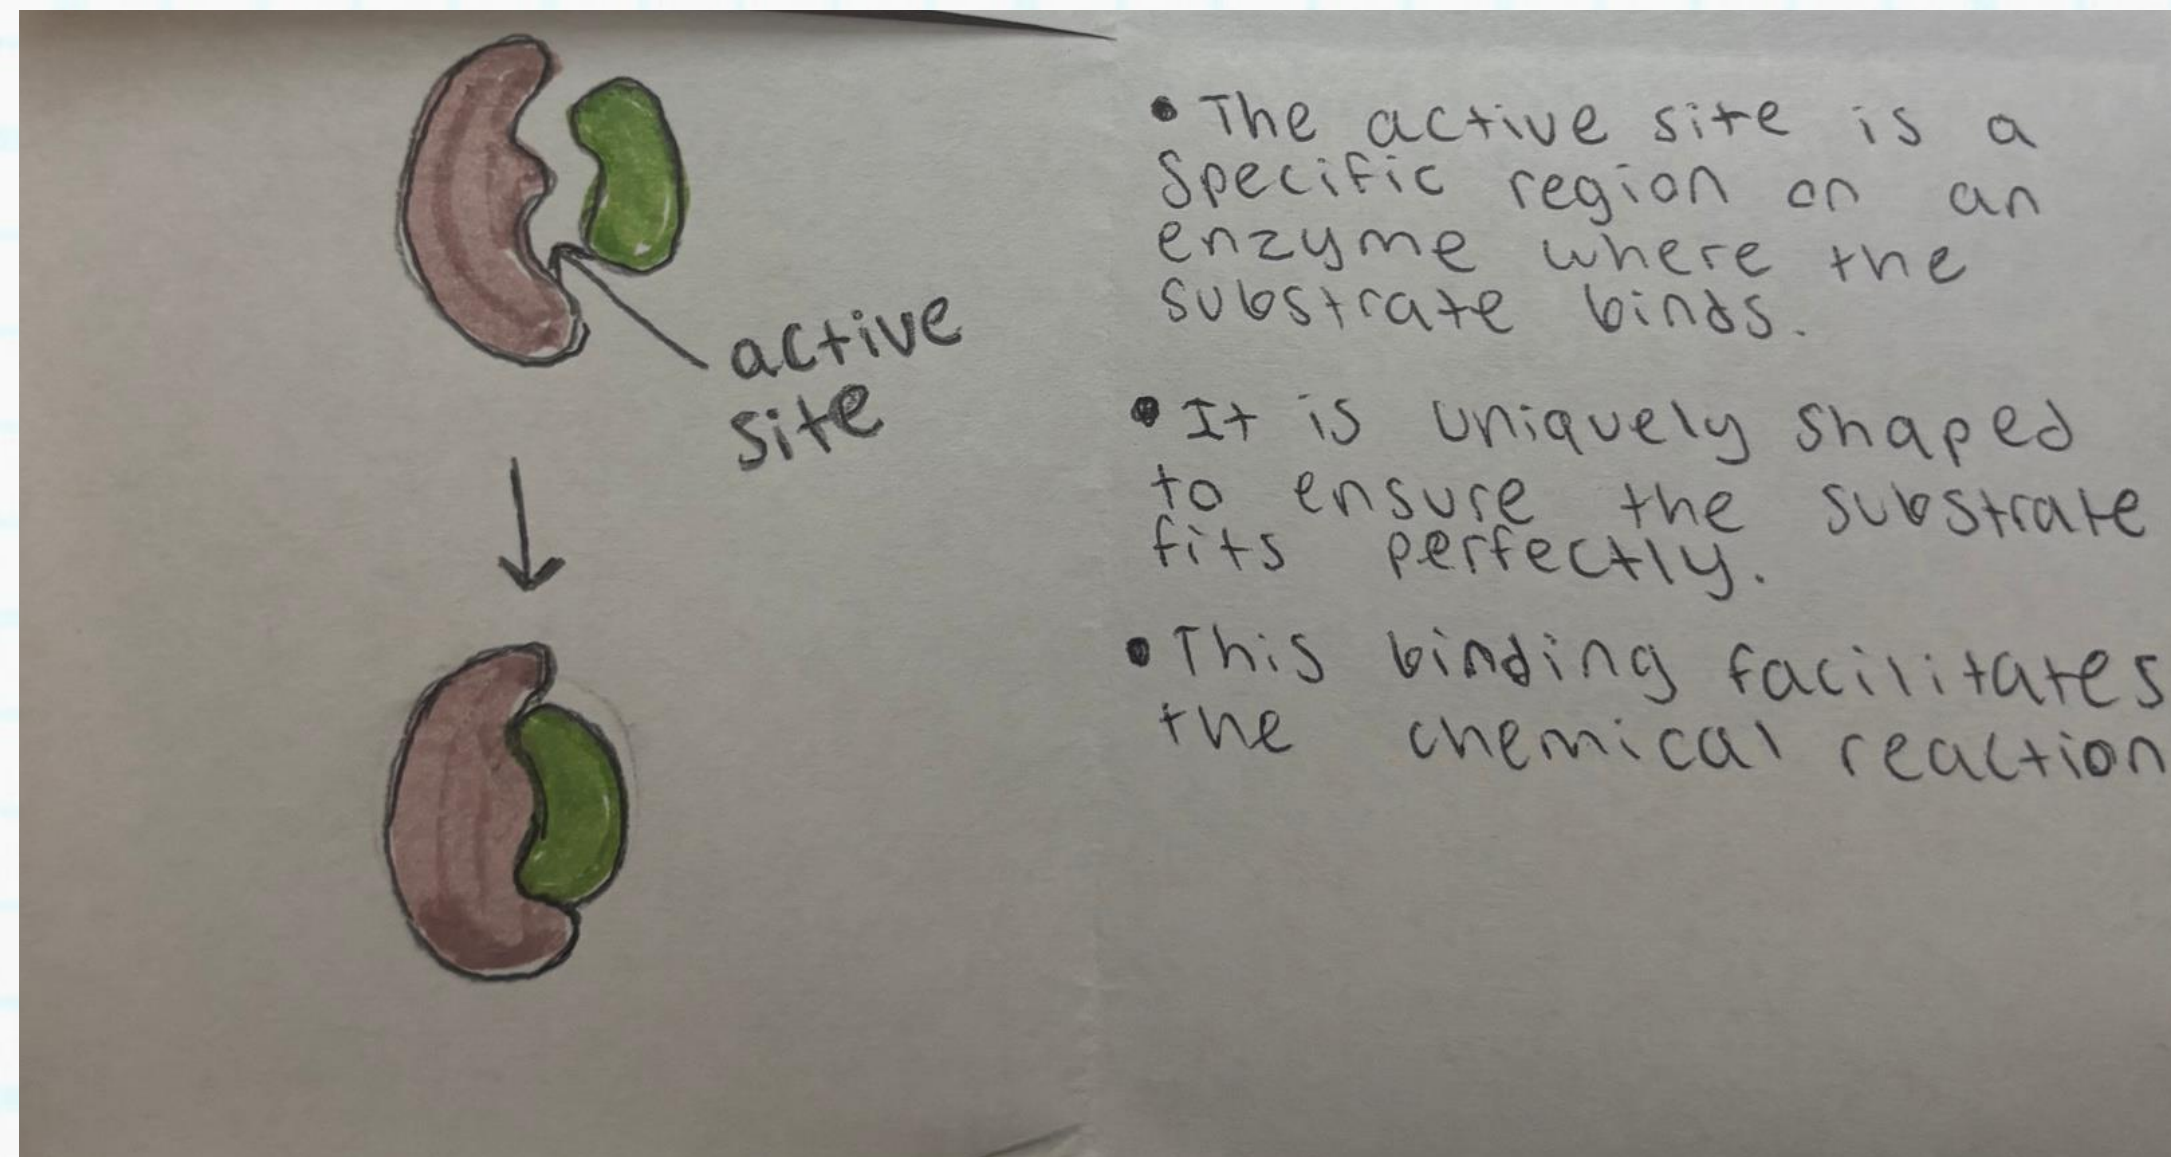 active
site
• The active site is a
specific region on an
enzyme where the
substrate binds.
• It is uniquely shaped
to ensure the substrate
fits perfectly.
• This binding facilitates
the chemical reaction